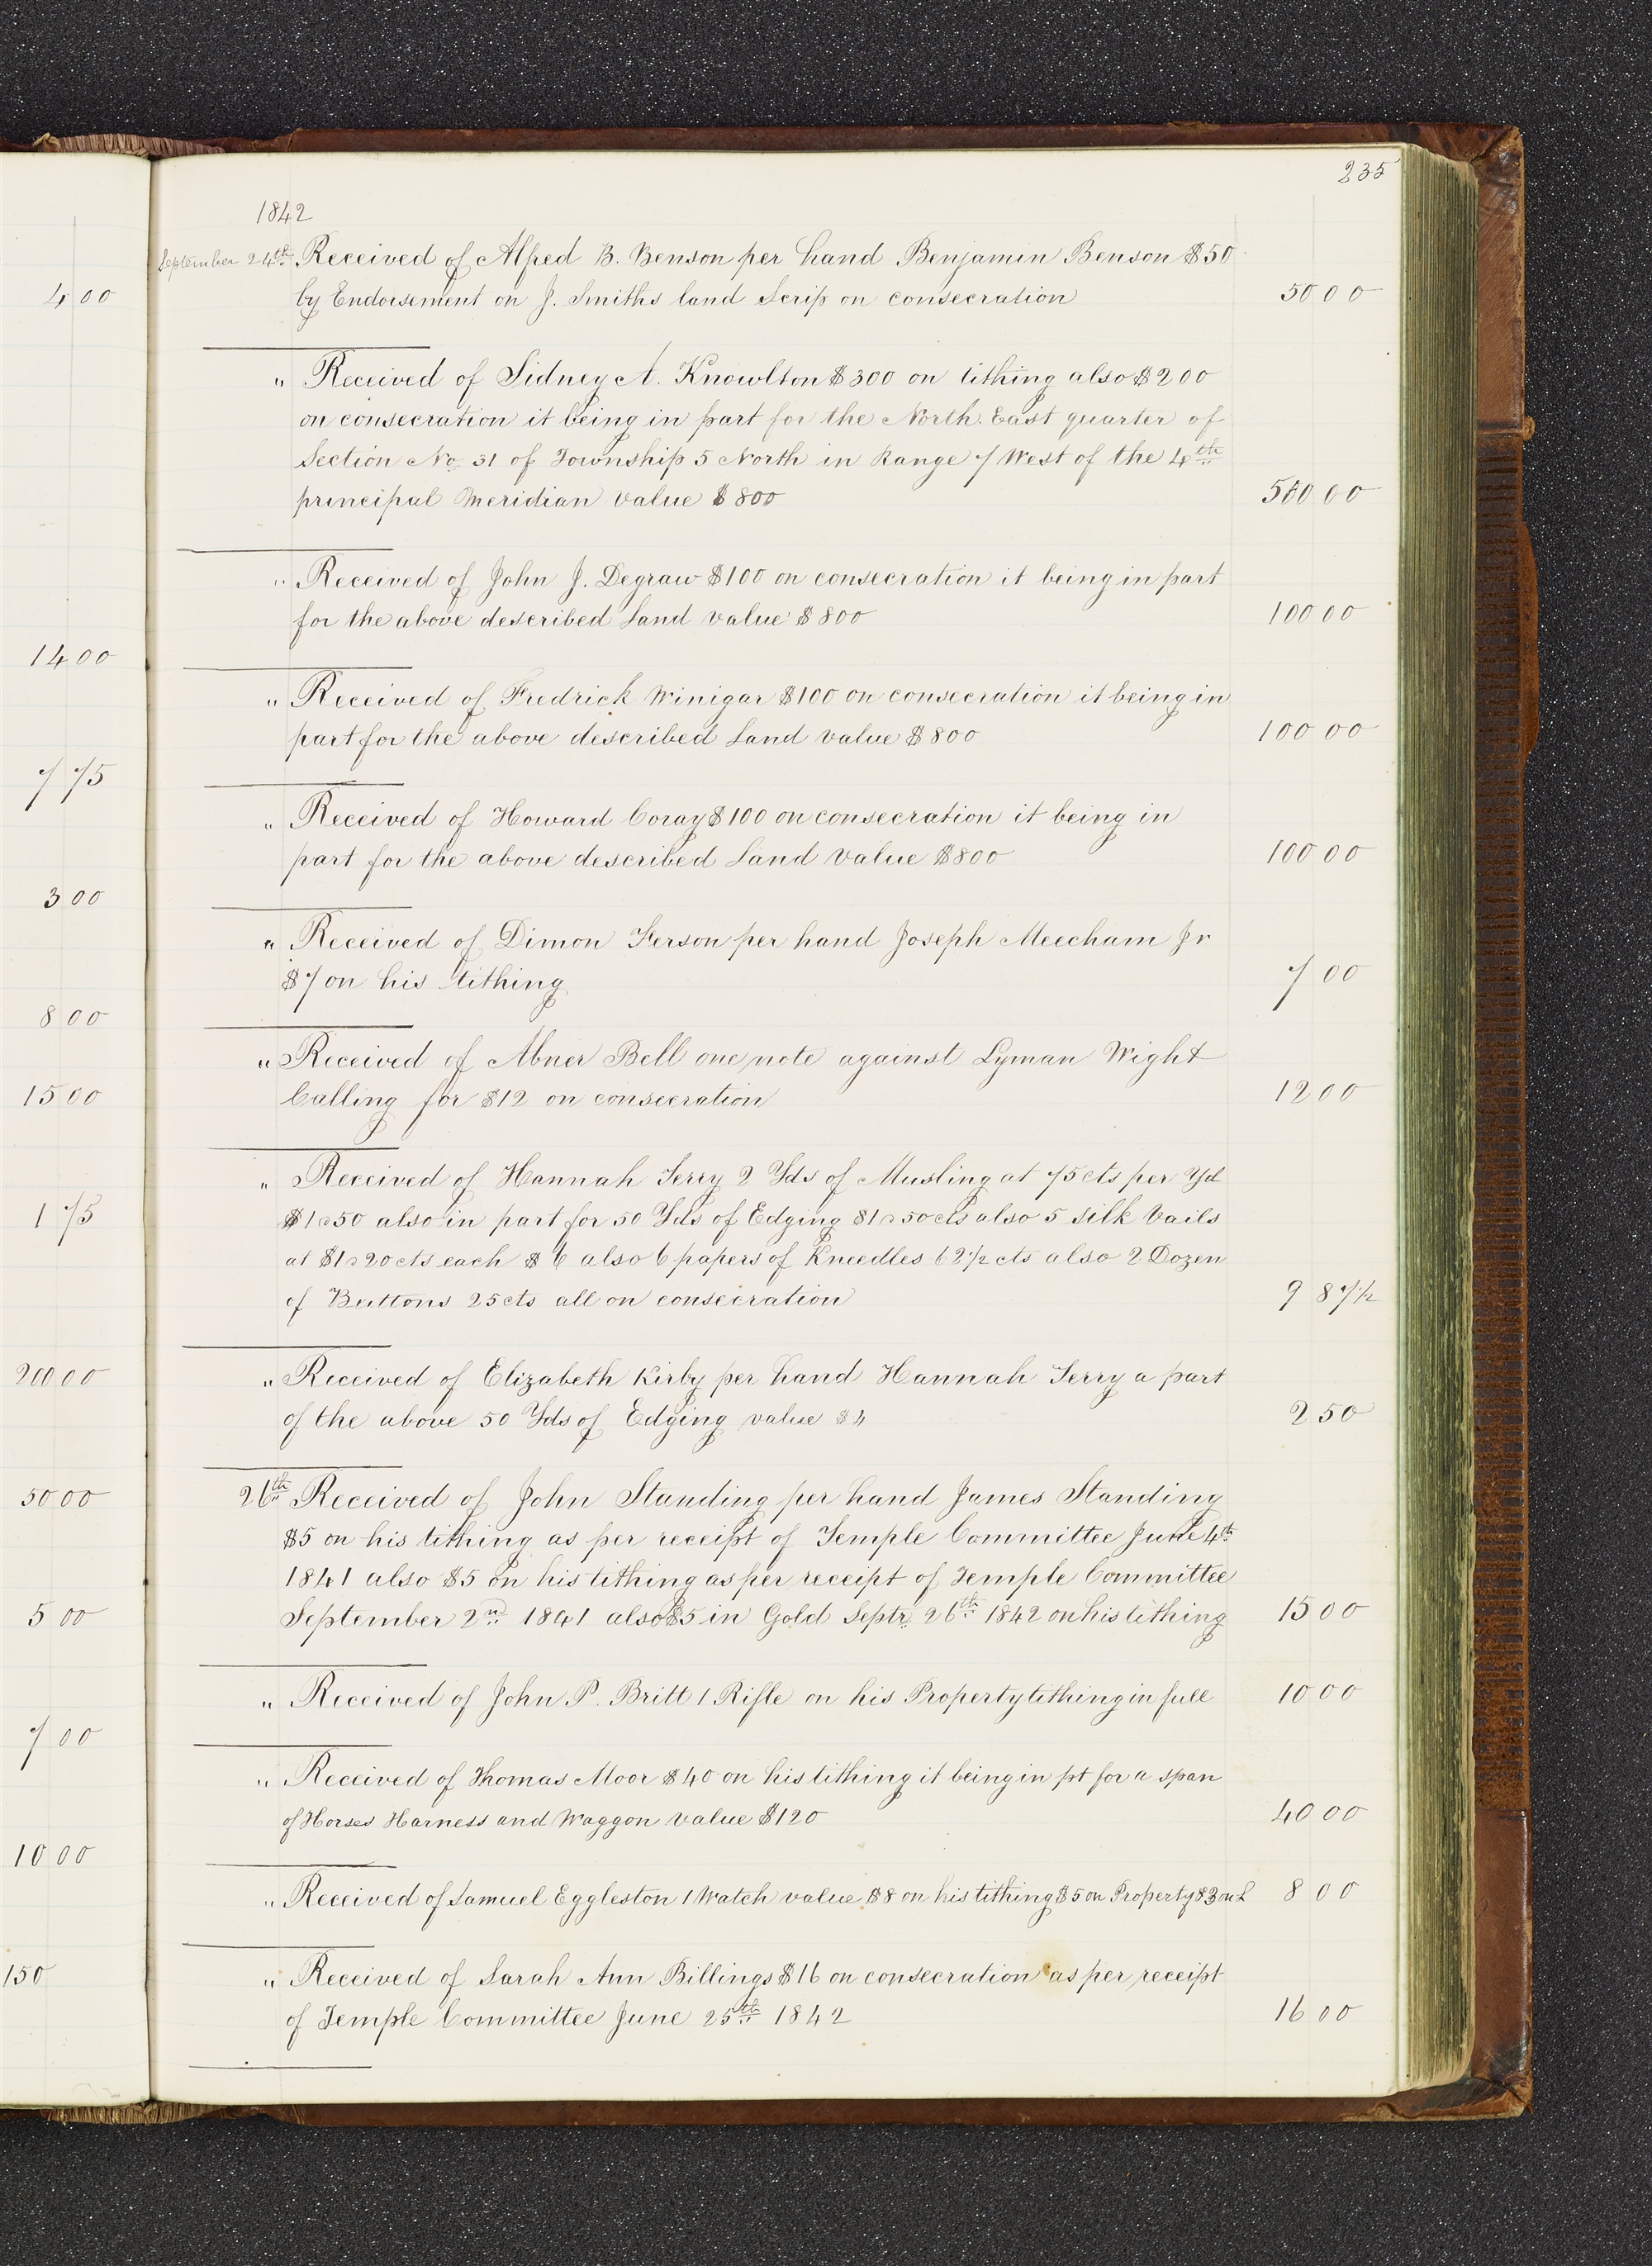 235
1842
September 24th Received of Alfred B. Benson per hand Benjamin Benson $50
by Endorsement on J. Smiths land Scrip on consecration 50 00
" Received of Sidney A. Knowlton $300 on tithing also $200
on consecration it being in part for the North East quarter of
Section No. 31 of Township 5 North in Range 7 West of the 4th
principal Meridian value $800 500 00
" Received of John J. Degraw $100 on consecration it being in part
for the above described Land value $800 100 00
" Received of Fredrick Winigar $100 on consecration it being in
part for the above described Land value $800 100 00
" Received of Howard Coray $100 on consecration it being in
part for the above described Land value $800 100 00
" Received of Dimon Ferson per hand Joseph Meecham Jr
$7 on his tithing 7 00
" Received of Abner Bell one note against Lyman Wight
Calling for $12 on consecration 12 00
" Received of Hannah Terry 2 Yds of Musling at 75 cts per Yd
$1=50 also in part for 50 Yds of Edging $1=50cts also 5 silk Vails
at $1=20cts each $6 also 6 papers of Kneedles 62 1/2 cts also 2 Dozen
of Buttons 25cts all on consecration 9 87 1/2
" Received of Elizabeth Kirby per hand Hannah Terry a part
of the above 50 Yds of Edging value $4 2 50
26th Received of John Standing per hand James Standing
$5 on his tithing as per receipt of Temple Committee June 4th
1841 also $5 on his tithing as per receipt of Temple Committee
September 2nd 1841 also $5 in Gold Septr. 26th 1842 on his tithing 15 00
" Received of John P. Britt 1 Rifle on his Property tithing in full 10 00
" Received of Thomas Moor $40 on his tithing it being in pt for a span
of Horses Harness and Waggon value $120 40 00
" Received of Samuel Eggleston 1 Watch value $8 on his tithing $5 on Property $3 on L 8 00
" Received of Sarah Ann Billings $16 on consecration as per receipt
of Temple Committee June 25th 1842 16 00
4 00
14 00
7 75
3 00
8 00
15 00
1 75
200 00
50 00
5 00
7 00
10 00
150